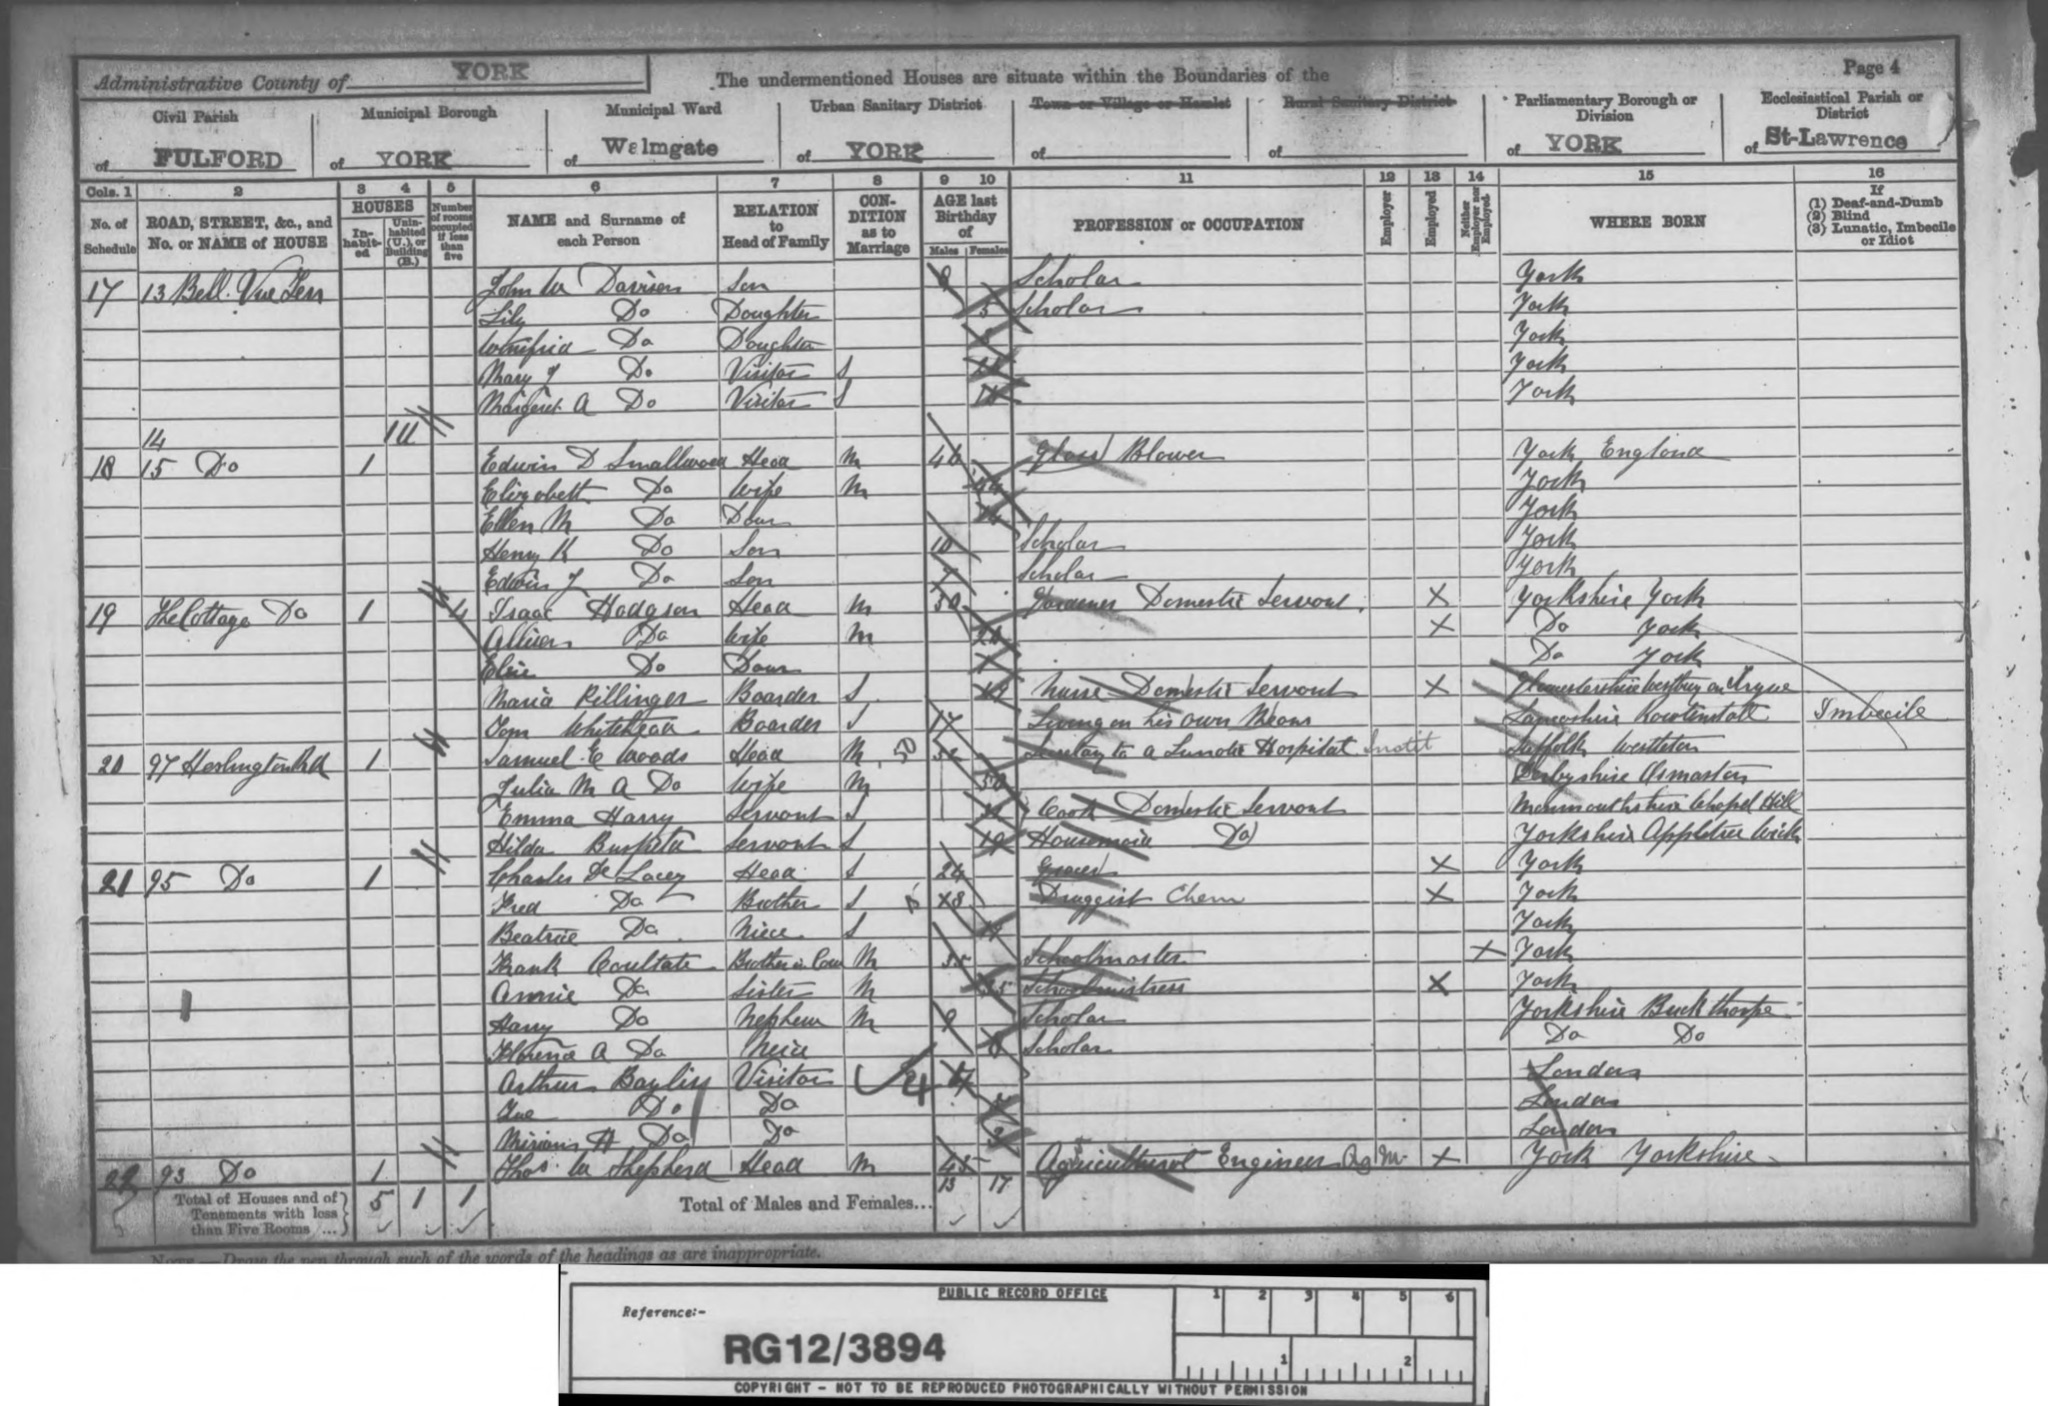 Administrative County of YORK The undermentioned Houses are situate within the Boundaries of the Page 4
Civil Parish of FULFORD
Municipal Borough of YORK
Municipal Ward of Walmgate
Urban Sanitary District of YORK
Town or Village or Hamlet of
Rural Sanitary District of
Parliamentary Borough or Division of YORK
Ecclesiastical Parish or District of St-Lawrence
Cols. 1 2 3 4 5 6 7 8 9 10 11 12 13 14 15 16
No. of Schedule
ROAD, STREET, &c., and No. or NAME of HOUSE
HOUSES
In-habit-ed
Unin-habited (U.), or Building (B.)
Number of rooms occupied if less than five
NAME and Surname of each Person
RELATION to Head of Family
CON-DITION as to Marriage
AGE last Birthday of
Males Females
PROFESSION or OCCUPATION
Employer
Employed
Neither Employer nor Employed
WHERE BORN
If (1) Deaf-and-Dumb (2) Blind (3) Lunatic, Imbecile or Idiot
17 13 Bell. Vue Terr John W Davison Son Scholar York
Lily Do Doughter 5 Scholar York
Winifrid Do Doughter York
Mary J Do Visitor S York
Margaret A Do Visitor S York
14 1U
18 15 Do 1 Edwin D Smallwood Head M 46 Glass Blower York England
Elizabeth Do Wife M 44 York
Ellen M Do Daur 14 York
Henry K Do Son 10 Scholar York
Edwin J Do Son 7 Scholar York
19 The Cottage Do 1 4 Isaac Hodgson Head M 30 Gardener Domestic Servant X Yorkshire York
Do Wife M X Do York
Elsie Do Daur Do York
Maria Killinger Boarder S Nurse Domestic Servant X
Tom Whitehead Boarder S 17 Living on his own Means Lancashire Rawtenstall Imbecile
20 97 Heslington Rd 1 Samuel E Woods Head M 50 52 Secretary to a Lunatic Hospital Instit Suffolk
Julia M A Do Wife M 50 Derbyshire Osmaston
Emma Harry Servant S Cook Domestic Servant Monmouthshire Chapel Hill
Hilda Servant S 19 Housemaid Do Yorkshire Appletree Wick
21 95 Do 1 Charles De Lacey Head S 24 Grocer X York
Fred Do Brother S 18 Druggist Chem X York
Beatrice Do Niece S York
Frank Coultate Brother in Law M 35 Schoolmaster X York
Annie Do Sister M 35 Schoolmistress X York
Harry Do Nephew M 9 Scholar Yorkshire Buckthorpe
Florence A Do Niece 8 Scholar Do Do
Arthur Bayliss Visitor 4 London
Do Do London
Miriam H Do Do 3 London
22 93 Do 1 Thos. W Shepherd Head M 45 Agricultural Engineer Ag M X York Yorkshire
Total of Houses and of Tenements with less than Five Rooms ... 5 1 1 Total of Males and Females... 13 17
NOTE.—Draw the pen through such of the words of the headings as are inappropriate.
PUBLIC RECORD OFFICE
Reference:-
RG12/3894
1 2 3 4 5 6
1 2
COPYRIGHT - NOT TO BE REPRODUCED PHOTOGRAPHICALLY WITHOUT PERMISSION